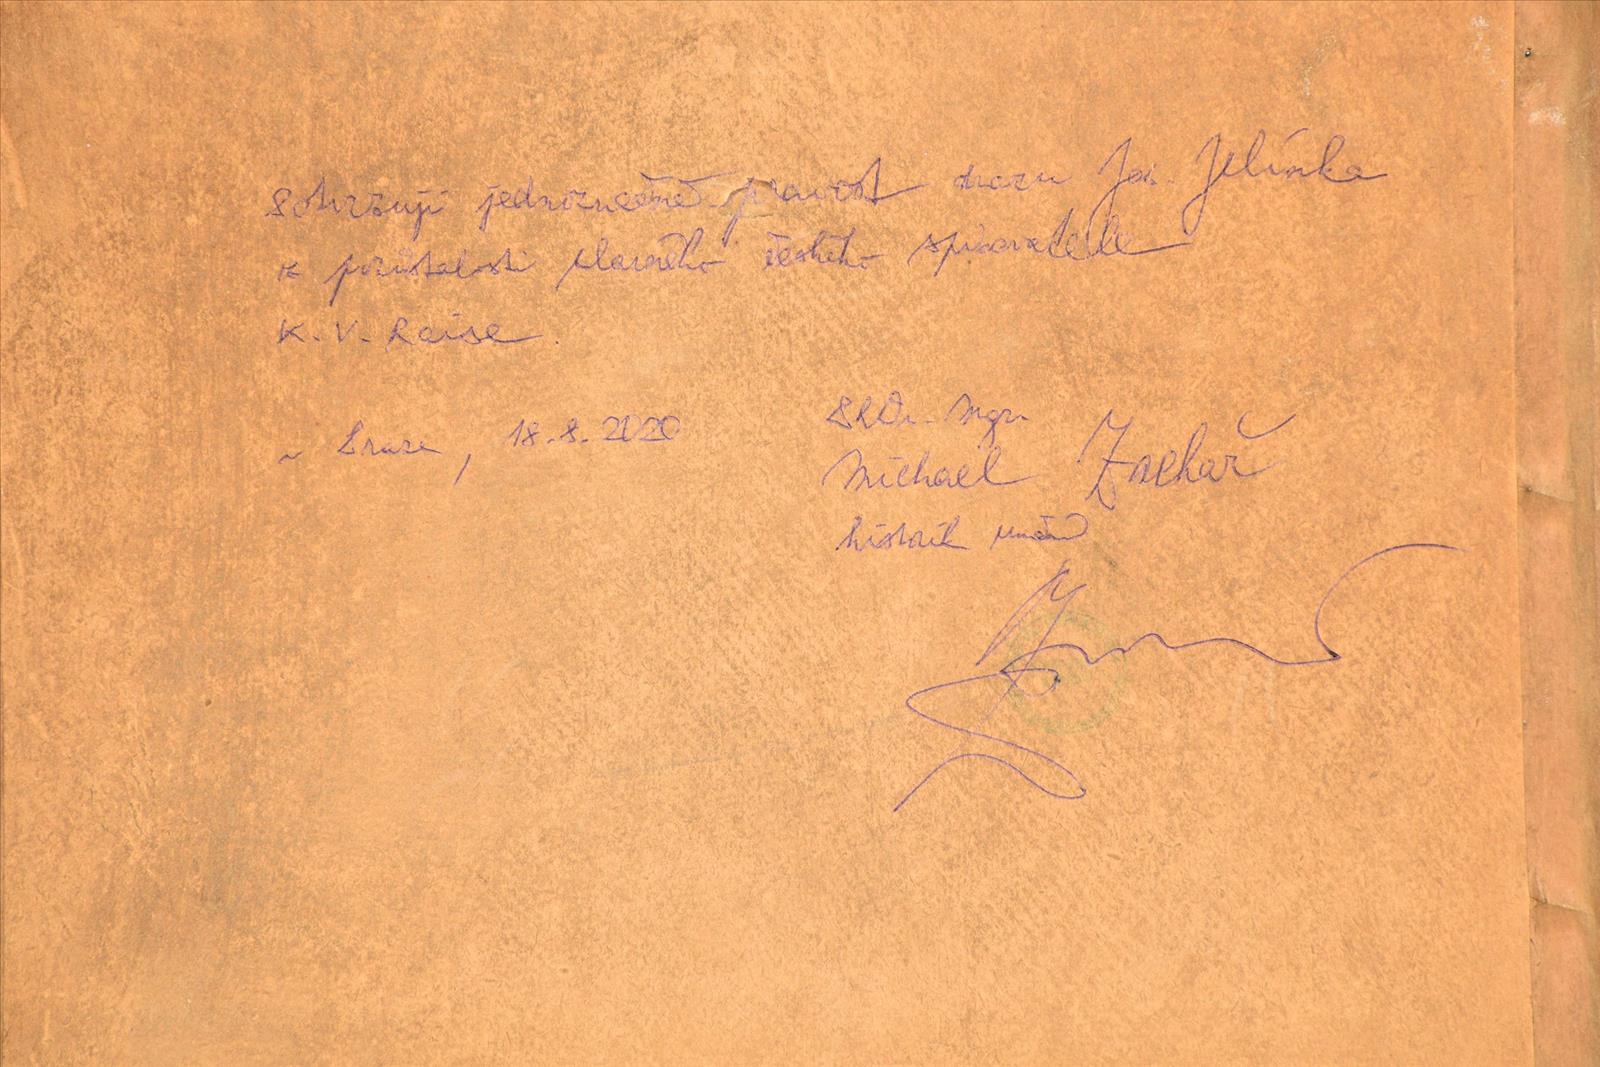 Potvrzuji jednoznačně pravost obrazu Jos. Jelínka
z pozůstalosti slavného českého spisovatele
K. V. Raise.
V Praze, 18.8.2020
PhDr. Mgr.
Michael Zachař
historik umění